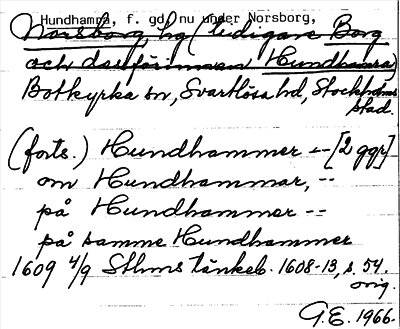 Hundhamra, f. gd, nu under Norsborg,
Norsborg, hg (tidigare Borg
och dessförinnan Hundhamra)
Botkyrka sn, Svartlösa hd, Stockholms
stad.
(forts.) Hundhammer -- [2 ggr]
om Hundhammar, --
på Hundhammer --
på samme Hundhammer
1609 4/9 Sthms tänkeb. 1608-13, s. 54.
orig.
G.E. 1966.